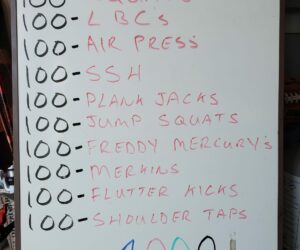 100-
100-LBCs
100-AIR PRESS
100-SSH
100-PLANK JACKS
100-JUMP SQUATS
100-FREDDY MERCURY's
100-MERKINS
100-FLUTTER KICKS
100-SHOULDER TAPS